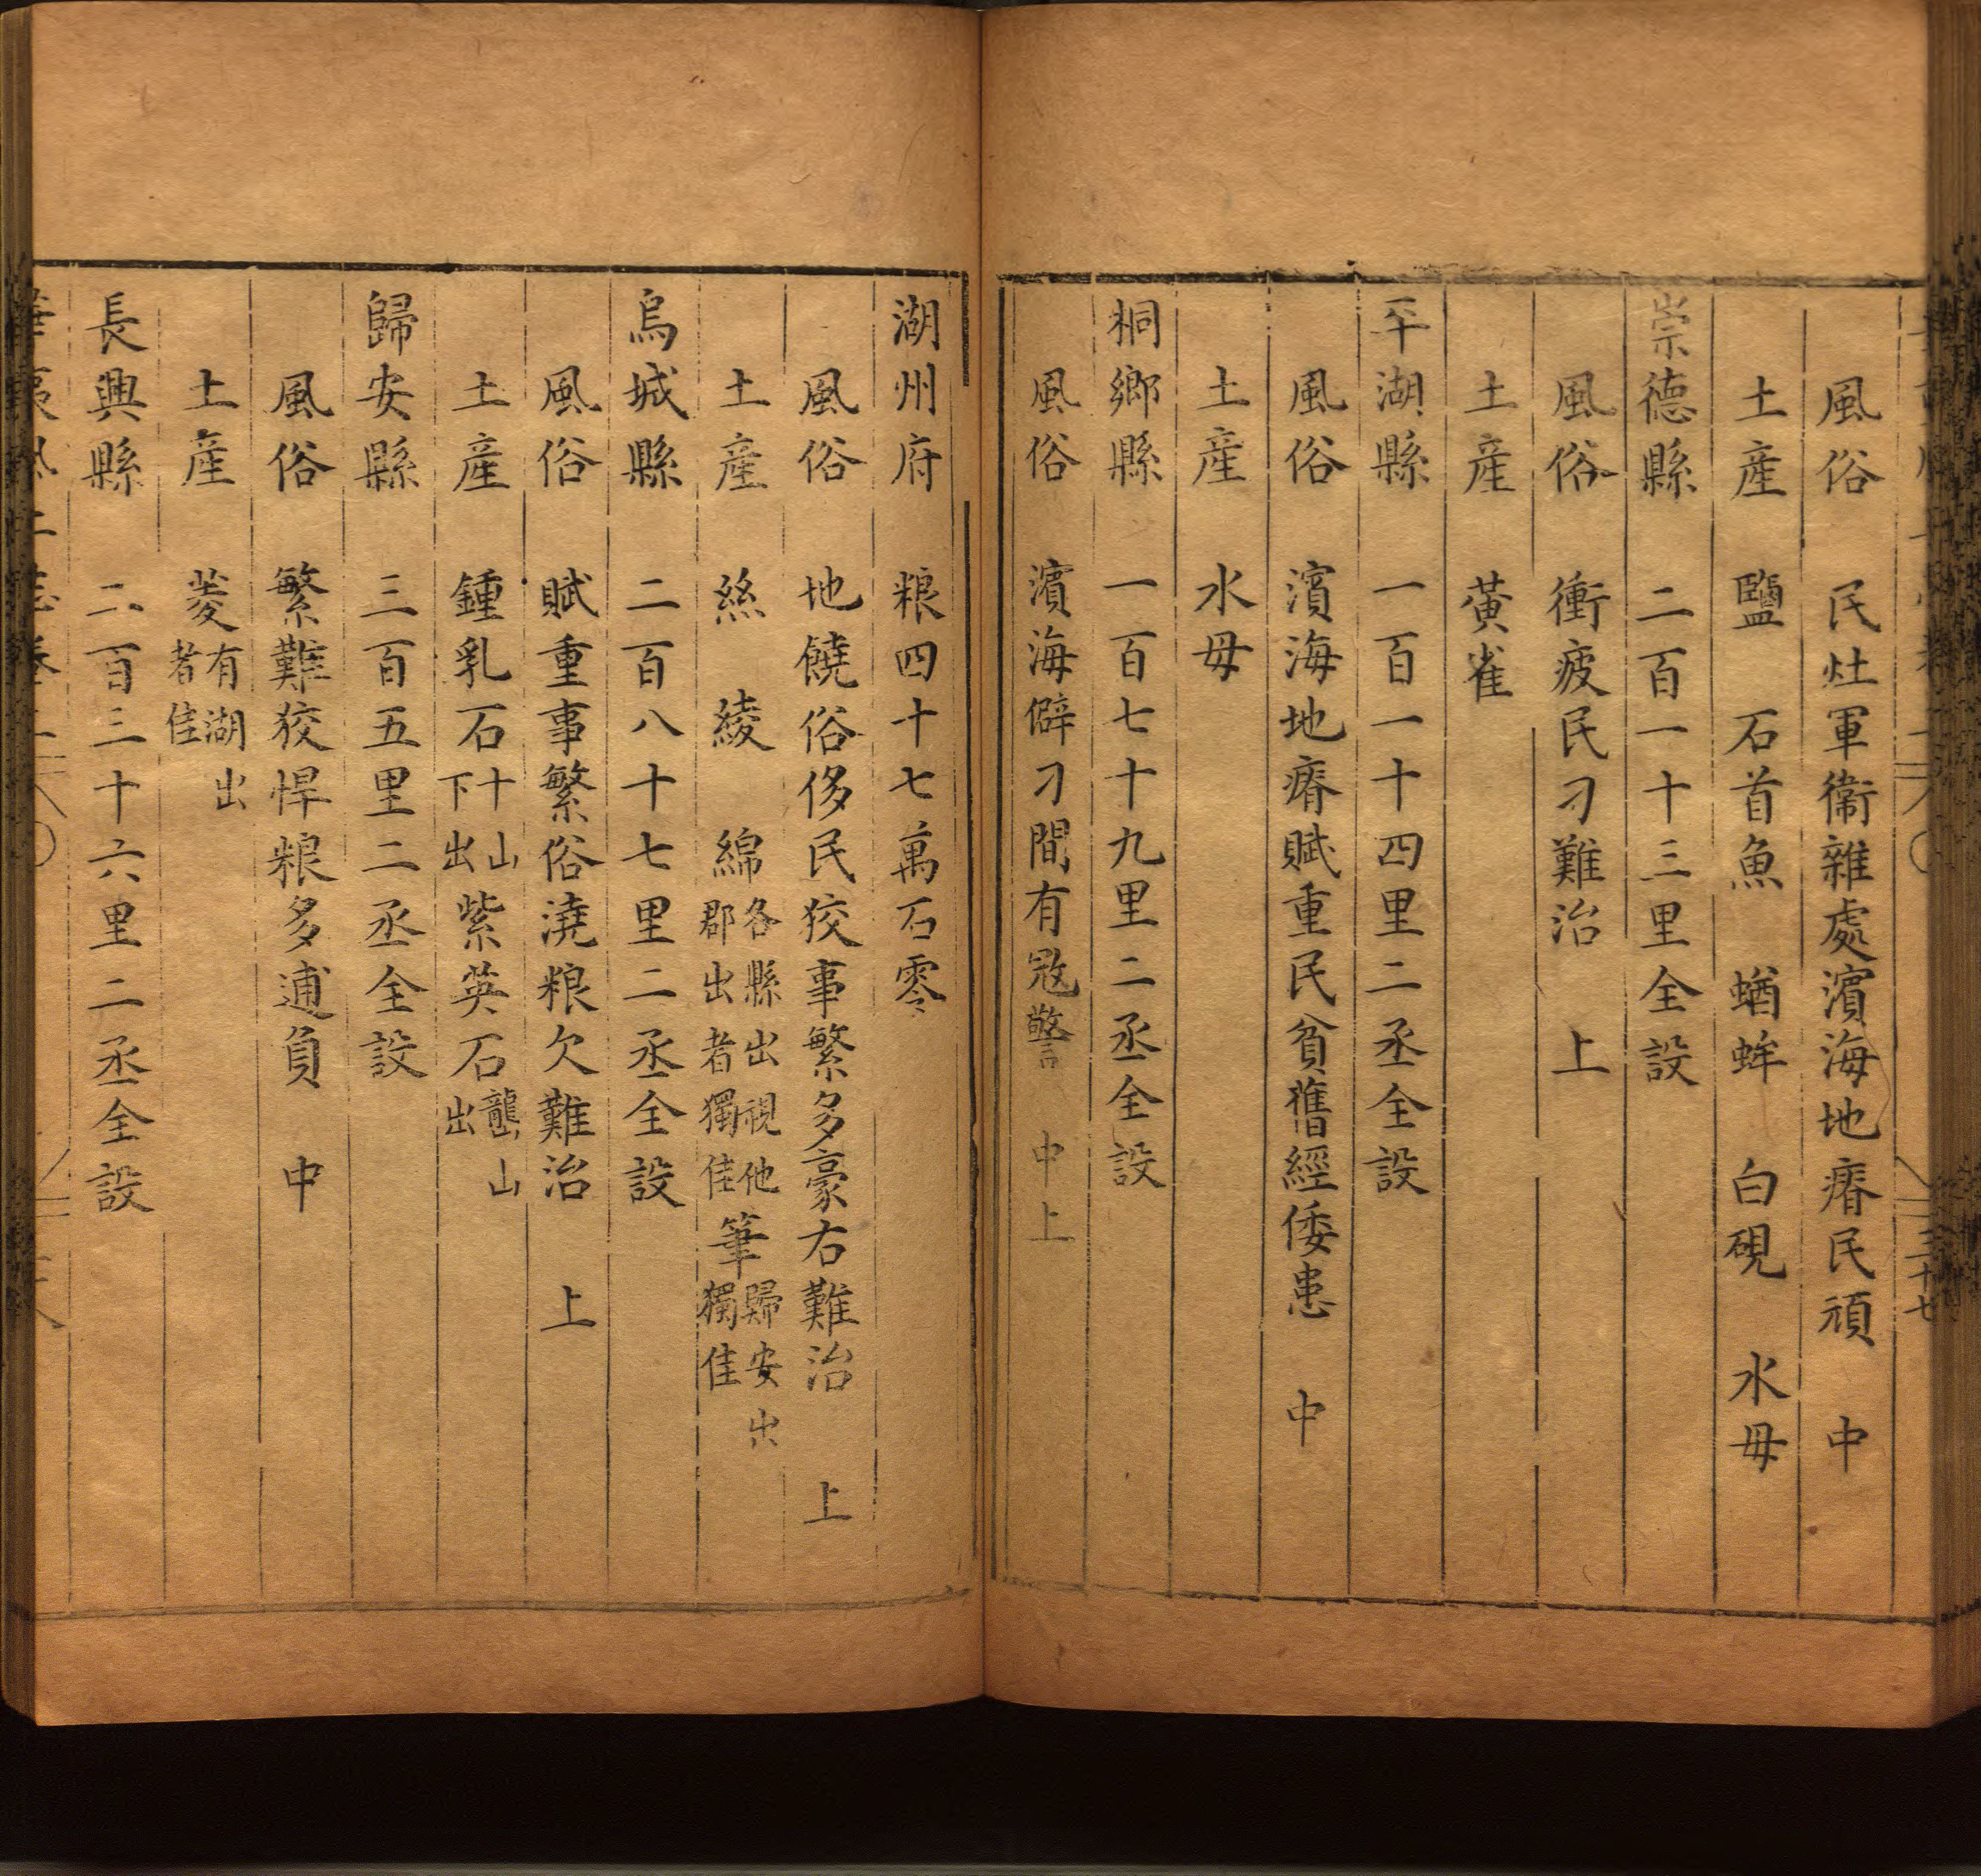 風俗 民灶軍衛雜處濱海地瘠民頑 中
土產 鹽 石首魚 蝤蛑 白硯 水母
崇德縣 二百一十三里全設
風俗 衝疲民刁難治 上
土產 黃雀
平湖縣 一百一十四里二丞全設
風俗 濱海地瘠賦重民貧舊經倭患 中
土產 水母
桐鄉縣 一百七十九里二丞全設
風俗 濱海僻刁間有寇警 中上
湖州府 粮四十七萬石零
風俗 地饒俗侈民狡事繁多豪右難治 上
土產 絲 綾 綿各縣出視他郡出者獨佳 筆歸安出獨佳
烏城縣 二百八十七里二丞全設
風俗 賦重事繁俗澆粮欠難治 上
土產 鍾乳石十山下出 紫英石壟山出
歸安縣 三百五里二丞全設
風俗 繁難狡悍粮多逋負 中
土產 菱有湖出者佳
長興縣 二百三十六里二丞全設